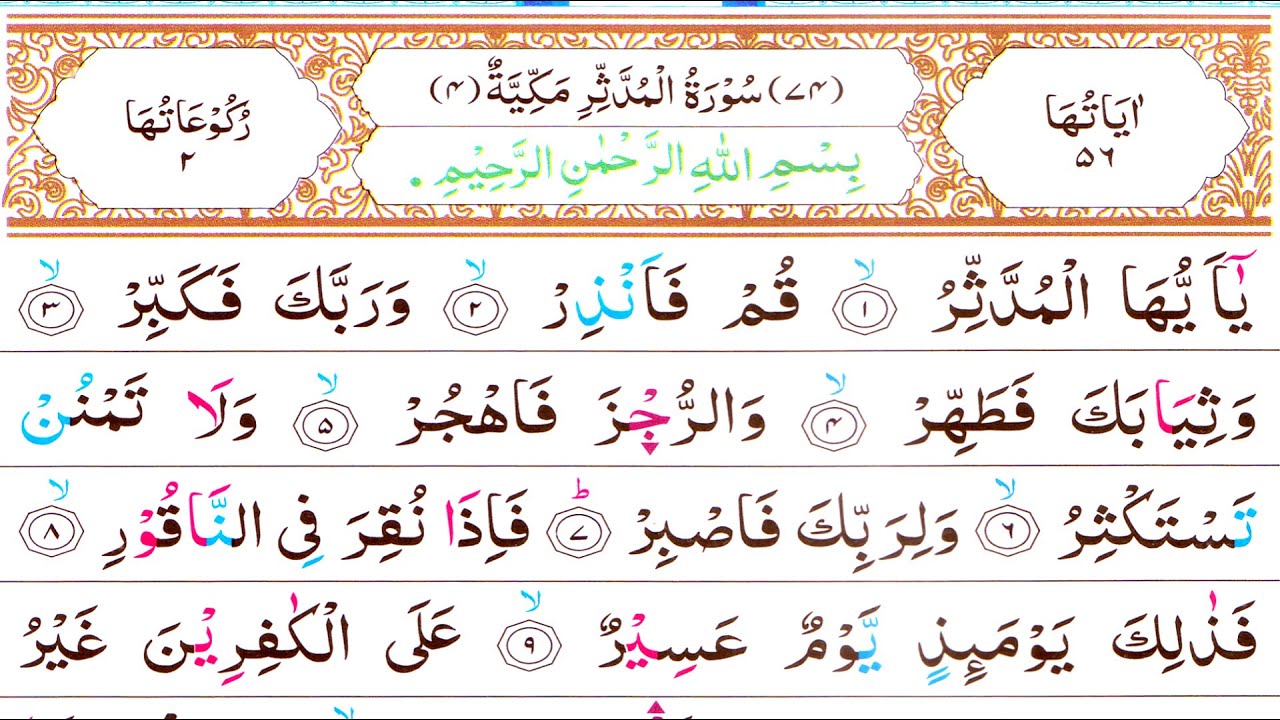 اٰيَاتُهَا
٥٦
(٧٤) سُوْرَةُ الْمُدَّثِّرِ مَكِّيَّةٌ (٤)
رُكُوْعَاتُهَا
٢
بِسْمِ اللّٰهِ الرَّحْمٰنِ الرَّحِيْمِ .
يٰٓاَيُّهَا الْمُدَّثِّرُ ۙ ١ قُمْ فَاَنْذِرْ ۙ ٢ وَرَبَّكَ فَكَبِّرْ ۙ ٣
وَثِيَابَكَ فَطَهِّرْ ۙ ٤ وَالرُّجْزَ فَاهْجُرْ ۙ ٥ وَلَا تَمْنُنْ
تَسْتَكْثِرُ ۙ ٦ وَلِرَبِّكَ فَاصْبِرْ ؕ ٧ فَاِذَا نُقِرَ فِى النَّاقُوْرِ ۙ ٨
فَذٰلِكَ يَوْمَئِذٍ يَّوْمٌ عَسِيْرٌ ۙ ٩ عَلَى الْكٰفِرِيْنَ غَيْرُ